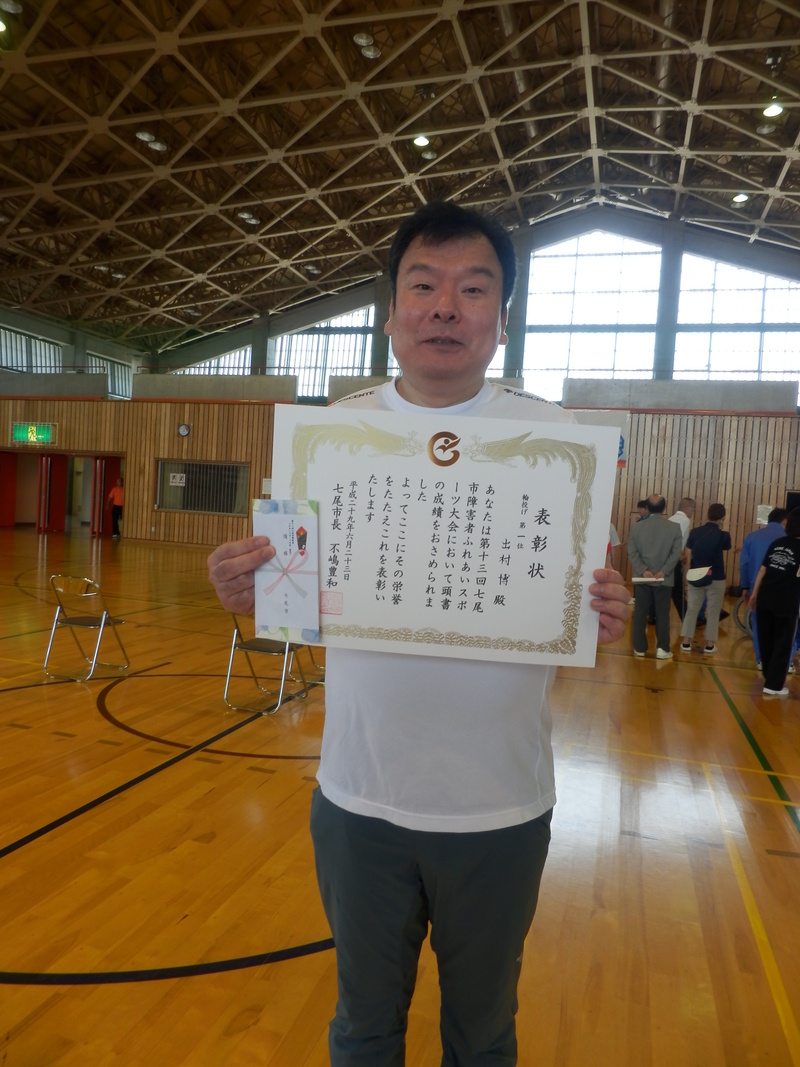 表彰状
輪投げ 第一位
出村 博 殿
あなたは第十三回七尾
市障害者ふれあいスポ
ーツ大会において頭書
の成績をおさめられま
した
よってここにその栄誉
をたたえこれを表彰い
たします
平成二十九年六月二十三日
七尾市長 不嶋豊和
DESCENTE